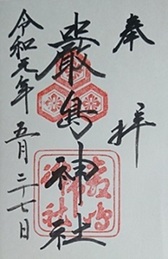 奉拝
嚴島神社
令和元年五月二十七日
嚴島
神社